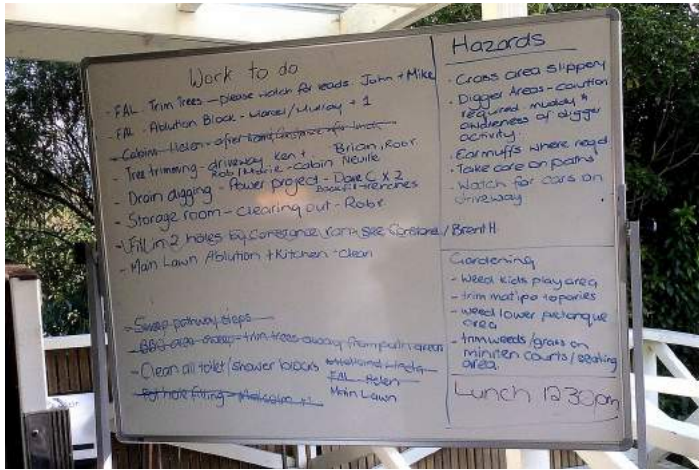 Work to do
- FAL. Trim Trees - please watch for leads. John + Mike
- FAL. Ablution Block - Marcel / Murray + 1
- Cabins - Helen - after
- Tree trimming - driveway Ken + Brian, Robr
Rob / Marie - Cabin Neville
- Drain digging - Power project - Dave C x 2
Backfill trenches
- Storage room - clearing out - Robr
- Fill in 2 holes by Constance room see / Brent H
- Main Lawn Ablution + Kitchen - Clean
- Sweep pathway steps
- BBQ area sweep + trim trees away from path areas
- Clean all toilet / shower blocks
FAL - Helen
Main Lawn
- Pot hole filling - Malcolm + 1
Hazards
- Grass area slippery
- Digger Areas - caution
required - muddy &
awareness of digger
activity.
- Earmuffs where req'd
- Take care on paths
- Watch for cars on
driveway
Gardening
- weed kids play area
- trim matipo topories
- weed lower petanque
area
- trim weeds / grass on
courts / seating
area.
Lunch 12 30pm